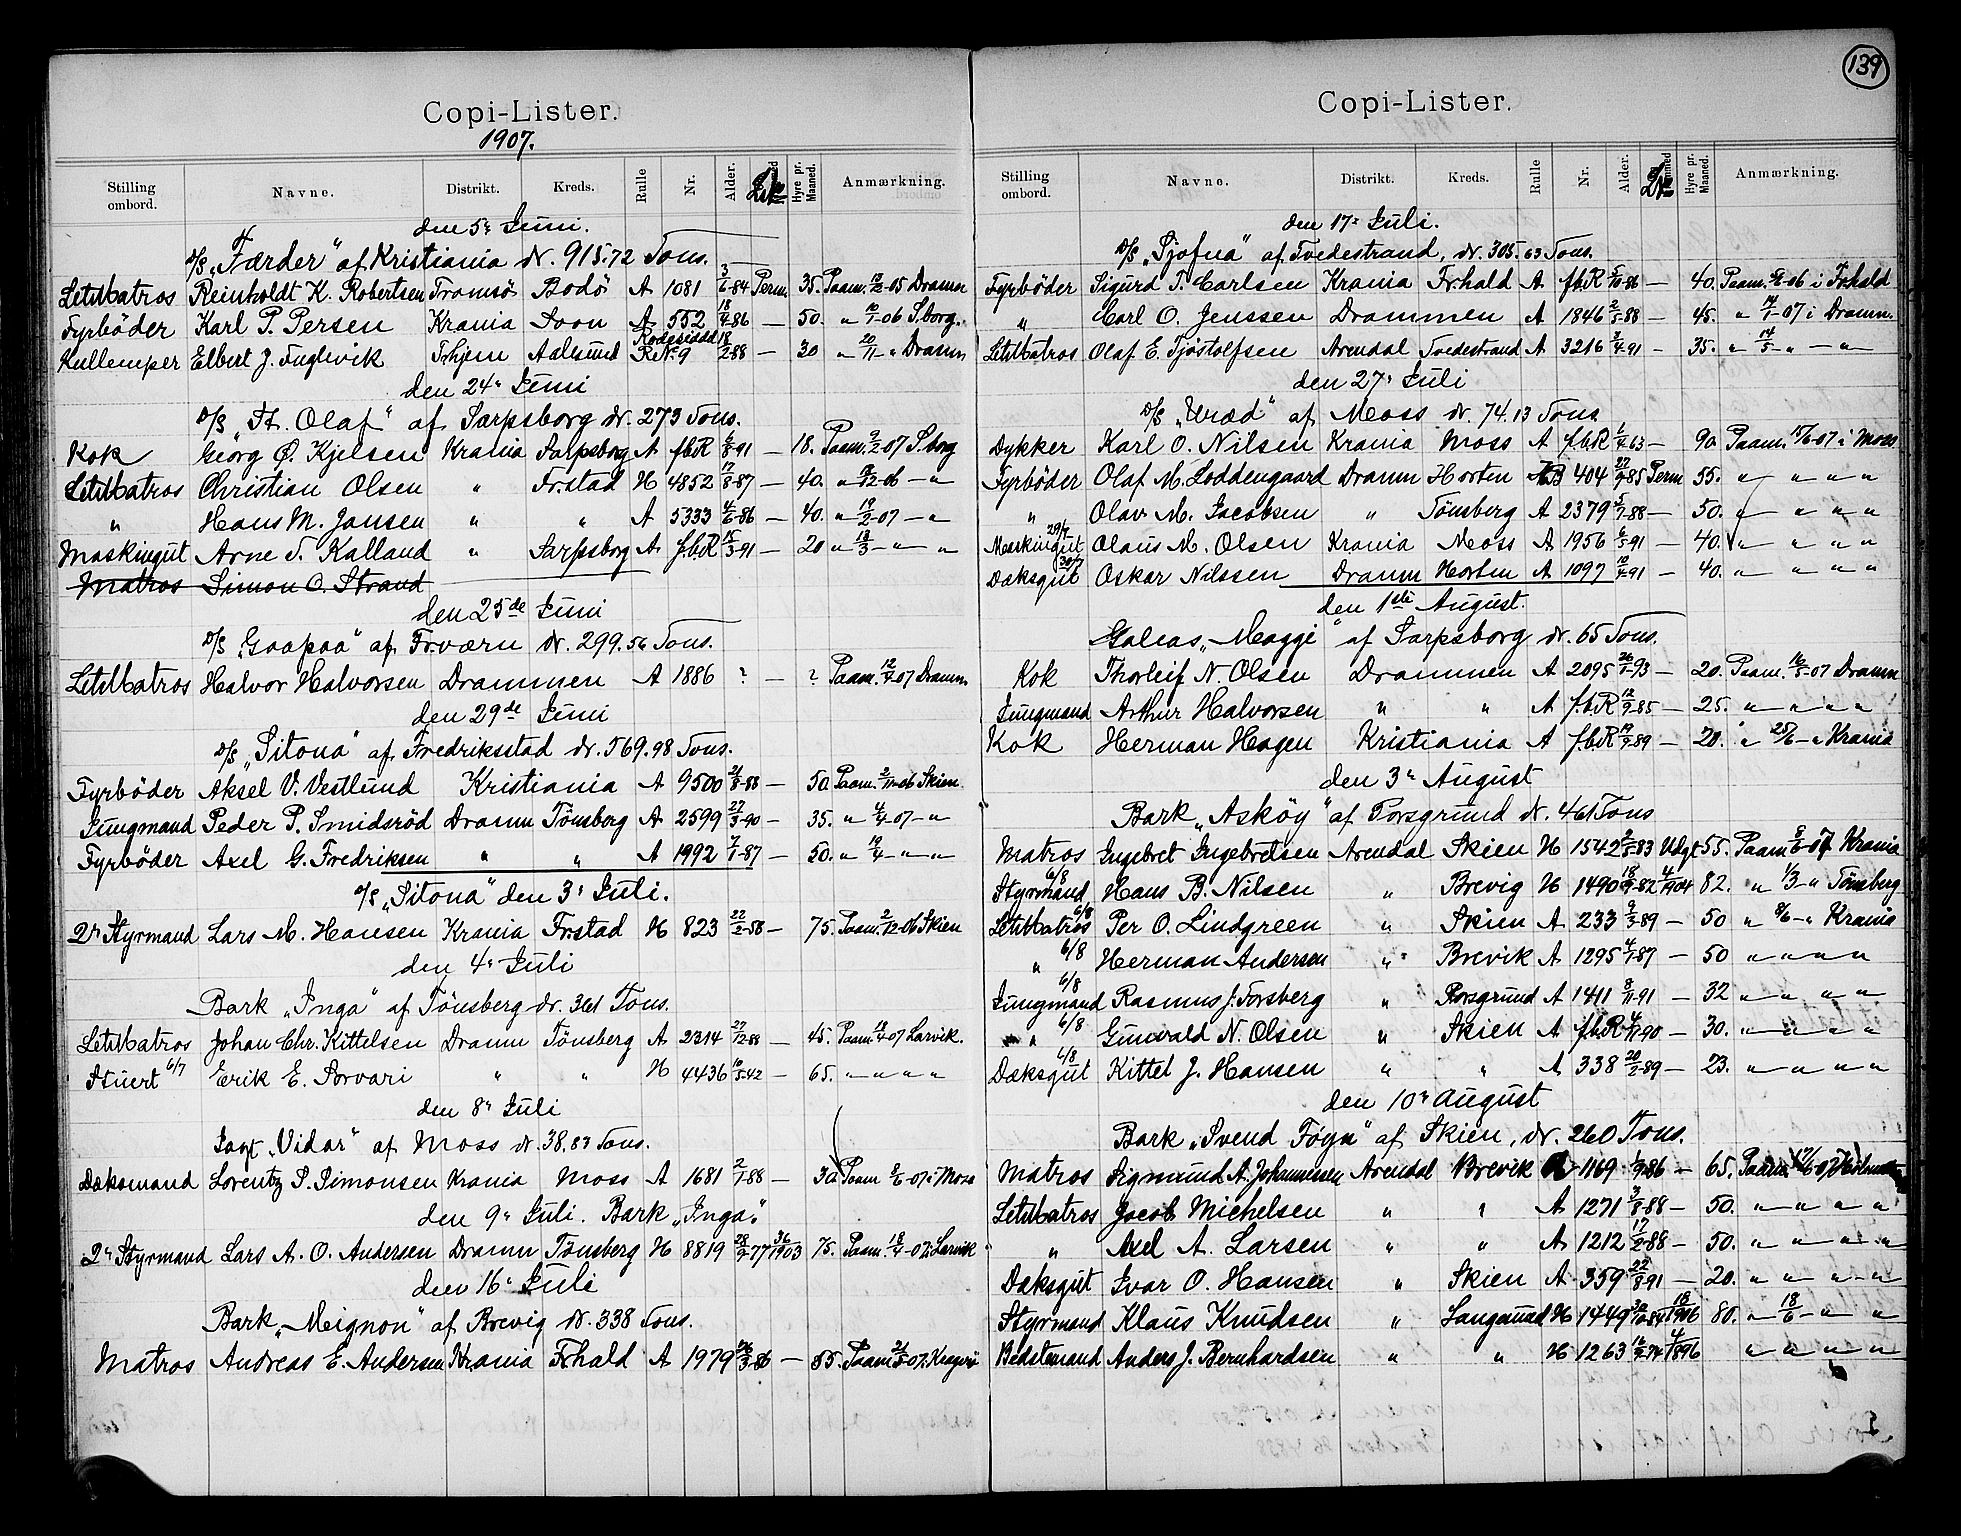 Copi-Lister.
1907.
Stilling ombord. Navne. Distrikt. Kreds. Rulle Nr. Alder. Hyre pr. Maaned. Anmærkning.
den 5' Juni.
D/S „Færder" af Kristiania dr. 915.72 Tons.
LetMatros Reinholdt K. Robertsen Tromsö Bodö A 1081 3/6-84 Perm. 35. Paam. 12/12-05 Dramn
Fyrböder Karl P. Persen Krania Soon A 552 18/4-86 — 50. „ 10/1-06 S.borg.
Kullemper Elbert J. Fuglevik Trhjem Aalesund R No. 9 18/2-88 — 30 „ 20/11-„ Dramn
den 24' Juni
D/S „St. Olaf" af Sarpsborg dr. 273 Tons.
Kok Georg O. Kjelsen Krania Sarpsborg A f.b.R 6/8-91 — 18. Paam. 9/2-07 S.borg
LetMatros Christian Olsen „ Fr.stad H 4852 17/8-87 — 40. „ /12-06 — „
„ Hans M. Jansen „ „ A 5333 4/6-86 — 40. „ 19/2-07 — „
Maskingut Arne T. Kalland „ Sarpsborg A f.b.R 15/3-91 — 20 „ 18/3 — „ — „
Matros Simon O. Strand
den 25de Juni
D/S „Gaapaa" af Fr.værn dr. 299.56 Tons.
LetMatros Halvor Halvorsen Drammen A 1886 ? — ? Paam. 12/4-07 Dramn.
den 29de Juni
D/S „Sitona" af Fredriksstad dr. 569.98 Tons.
Fyrböder Aksel V. Vestlund Kristiania A 9500 21/8-88 — 50 Paam. 2/11-06 Skien.
Jungmand Peder P. Smidsröd Dramn Tönsberg A 2599 27/3-90 — 35. „ 4/4-07 — „
Fyrböder Axel G. Fredriksen „ „ A 1992 7/1-87 — 50. „ 19/4 — „ — „
D/S „Sitona" den 3' Juli.
2' Styrmand Lars M. Hansen Krania Fr.stad H 823 22/2-58 — 75. Paam. 2/12-06 Skien
den 4' Juli
Bark „Inga" af Tönsberg dr. 361 Tons.
LetMatros Johan Chr. Kittelsen Dramn Tönsberg A 2314 27/12-88 — 45. Paam. 18/4-07 Larvik.
Stuert 6/7 Erik E. Sorvari „ „ H 4436 10/5-42 — 65. „ „ „ „
den 8' Juli
Jagt „Vidar" af Moss dr. 38.83 Tons.
Dæksmand Lorentz S. Simonsen Krania Moss A 1681 2/1-88 — 30. Paam 8/6-07 i Moss
den 9' Juli. Bark „Inga".
2' Styrmand Lars A. O. Andersen Dramn Tönsberg H 8819 28/2-77 1903 75. Paam. 18/4-07. Larvik
den 16' Juli
Bark „Meignon" af Brevig dr. 338 Tons.
Matros Andreas E. Andersen Krania Fr.hald A 1979 26/3-86 — 55. Paam. /5-07. Kragerö
139
Copi-Lister.
Stilling ombord. Navne. Distrikt. Kreds. Rulle Nr. Alder. Hyre pr. Maaned. Anmærkning.
den 17' Juli.
D/S „Sjofna" af Tvedestrand, dr. 305.63 Tons.
Fyrböder Sigurd T. Carlsen Krania Fr.hald A f.b.R 5/10-86 — 40. Paam. /6-06 i Fr.hald
„ Carl O. Jenssen Drammen A 1846 2/5-88 — 45. „ 14/1-07 i Dramn.
LetMatros Olaf E. Tjöstolfsen Arendal Tvedestrand A 3216 3/4-91 — 35. „ 14/5 - „ — „
den 27' Juli
D/S „Uræd" af Moss dr. 74.13 Tons
Dykker Karl O. Nilsen Krania Moss A f.b.R 1/4-63 — 90. Paam. /6-07 i Moss
Fyrböder Olaf M. Loddengaard Dramn Horten 404 22/9-85 Perm 55. „ „ „ „
„ Olav M. Jacobsen „ Tönsberg A 2379 5/7-88 — 50. „ „ „ „
29/7
Maskingut Olaus M. Olsen Krania Moss A 1956 6/5-91 — 40. „ „ „ „
30/7
Dæksgut Oskar Nilssen Dramn Horten A 1097 10/4-91 — 40. „ „ „ „
den 1ste August.
Galeas „Maggi" af Sarpsborg dr. 65 Tons.
Kok Thorleif N. Olsen Drammen A 2095 26/1-93 — 20. Paam. 16/5-07 Dramn
Jungmand Arthur Halvorsen „ „ A f.b.R 12/9-85 — 25. „ „ „ „
Kok Herman Hagen Kristiania A f.b.R 19/9-89 — 20. „ 25/6 - „ Krania
den 3' August
Bark „Asköy" af Porsgrund dr. 461 Tons
Matros Ingebret Ingebretsen Arendal Skien H 1542 2/5-83 Udgt 55. Paam 8/6-07 Krania
6/8
Styrmand Hans B. Nilsen „ Brevig H 1490 18/9-82 4/1904 82. „ 1/3 - „ Tönsberg
6/8
LetMatros Per O. Lindgreen „ Skien A 233 9/3-89 — 50 „ 8/6 - „ Krania
„ 6/8 Herman Andersen „ Brevik A 1295 4/7-87 — 50 „ „ „ „
6/8
Jungmand Rasmus J. Forsberg „ Porsgrund A 1411 8/11-91 — 32 „ „ „ „
„ 6/8 Gunvald N. Olsen „ Skien A f.b.R 4/11-90 — 30. „ „ „ „
6/8
Dæksgut Kittel J. Hansen „ „ A 338 20/2-89 — 23. „ „ „ „
den 10' August
Bark „Svend Föyn" af Skien, dr. 260 Tons.
Matros Sigmund A. Johannessen Arendal Brevik A 1169 1/9-86 — 65. Paam. 17/6-07
LetMatros Jacob Michelsen „ „ A 1271 3/8-88 — 50. „ „ „ „
„ Axel A. Larsen „ „ A 1212 17/2-88 — 50. „ „ „ „
Dæksgut Ivar O. Hansen „ Skien A 359 22/8-91 — 20. „ „ „ „
Styrmand Klaus Knudsen „ Langesund H 1449 30/10-84 18/1906 80. „ 18/6 - „ „
Bedstemand Anders J. Bernhardsen „ „ H 1263 16/9-74 4/1896 „ „ „ „